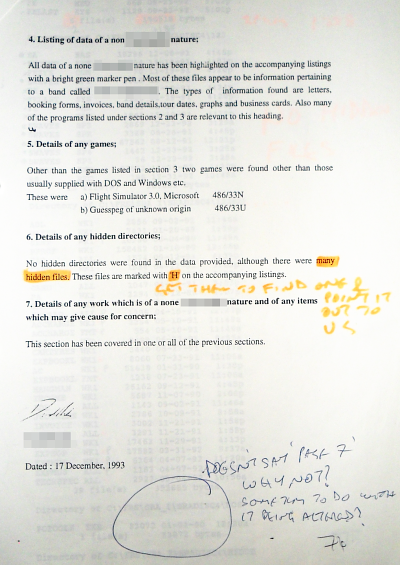 4. Listing of data of a non nature;
All data of a none nature has been highlighted on the accompanying listings
with a bright green marker pen . Most of these files appear to be information pertaining
to a band called . The types of information found are letters,
booking forms, invoices, band details,tour dates, graphs and business cards. Also many
of the programs listed under sections 2 and 3 are relevant to this heading.
5. Details of any games;
Other than the games listed in section 3 two games were found other than those
usually supplied with DOS and Windows etc.
These were a) Flight Simulator 3.0, Microsoft 486/33N
b) Guesspeg of unknown origin 486/33U
6. Details of any hidden directories;
No hidden directories were found in the data provided, although there were many
hidden files. These files are marked with 'H' on the accompanying listings.
GET THEM TO FIND ONE &
POINT IT
OUT TO
US
7. Details of any work which is of a none nature and of any items
which may give cause for concern;
This section has been covered in one or all of the previous sections.
Dated : 17 December, 1993
DOESN'T SAY 'PAGE 7'
WHY NOT?
SOMETHING TO DO WITH
IT BEING ALTERED?